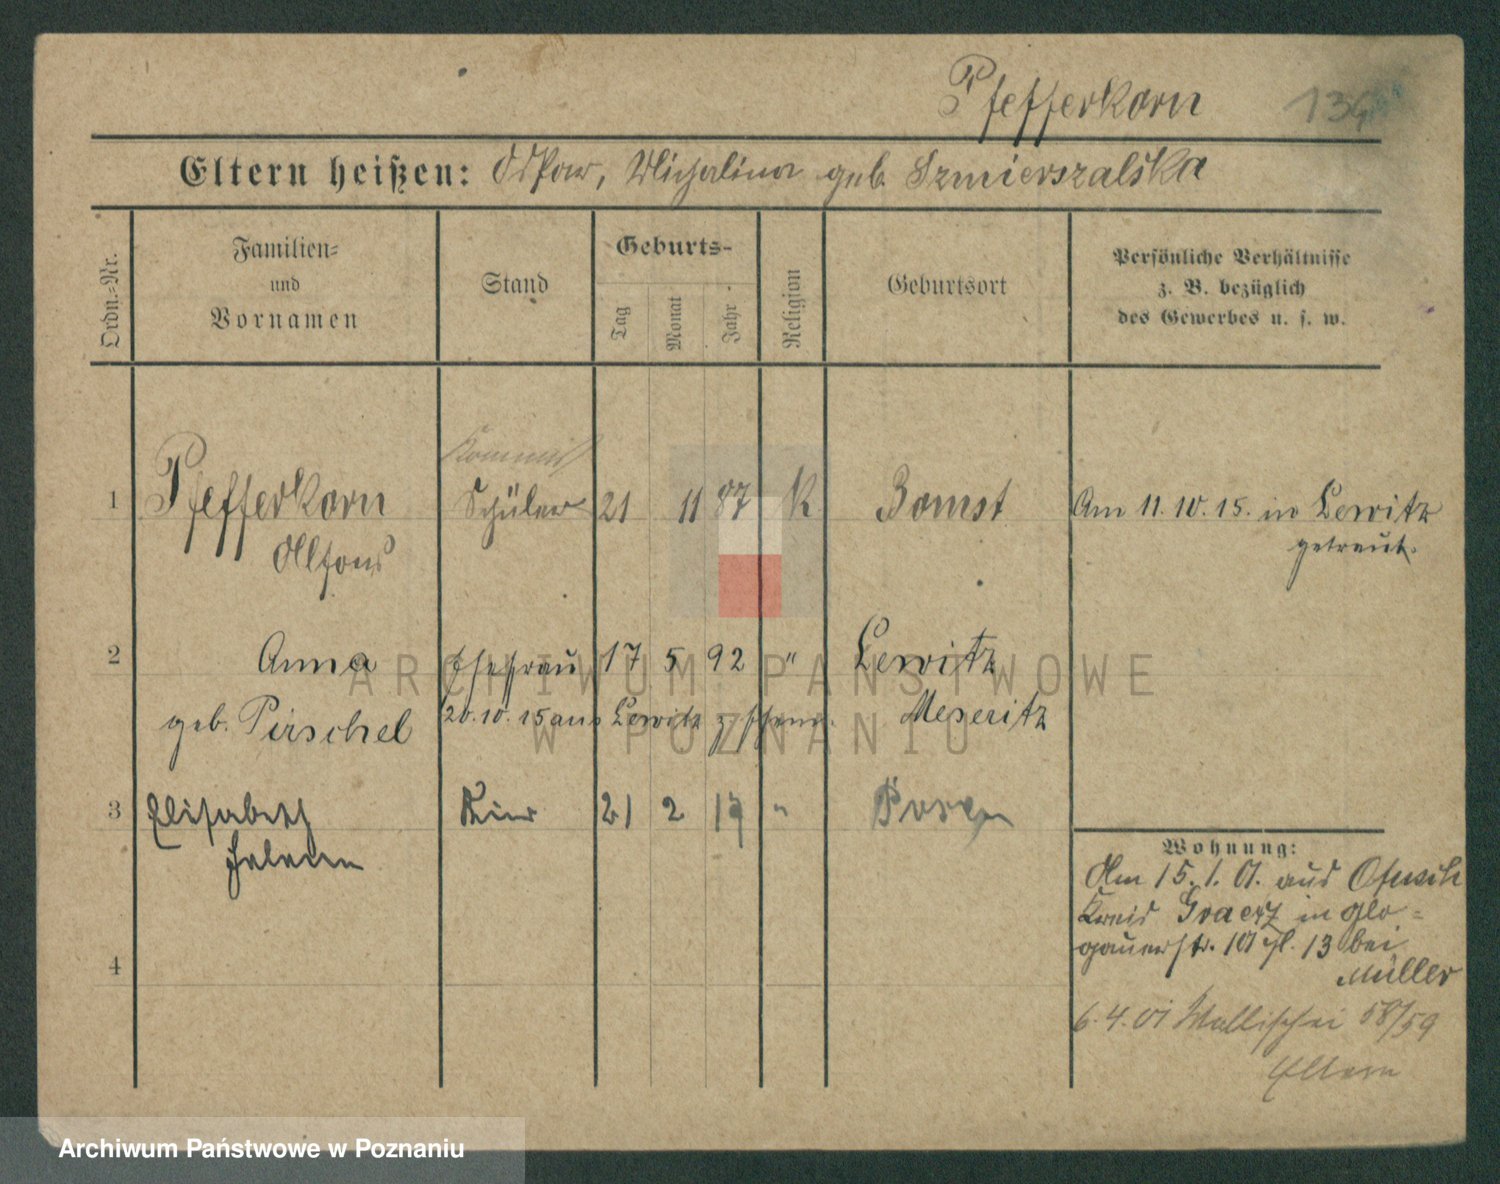 Pfefferkorn 134
Eltern heißen: Oskar, Michalina geb. Szmierszalska
Ordn.-Nr.
Familien-
und
Vornamen
Stand
Geburts-
Tag
Monat
Jahr
Religion
Geburtsort
Persönliche Verhältnisse
z. B. bezüglich
des Gewerbes u. s. w.
Kommis
1 Pfefferkorn Schüler 21 11 87 K Bomst Am 11.10.15. in Lewitz
Alfons getraut.
2 Anna Ehefrau 17 5 92 " Lewitz
geb. Pirschel 20.10.15 aus Lewitz Meseritz
3 Elisabeth Kind 21 2 17 " Posen
Helene
Wohnung:
Am 15.1.01. aus
Kreis Graetz in Glo-
gauerstr. 101 13 bei
Müller
4
6.4.01 Wallischei 58/59
Eltern
ARCHIWUM PAŃSTWOWE
W POZNANIU
Archiwum Państwowe w Poznaniu